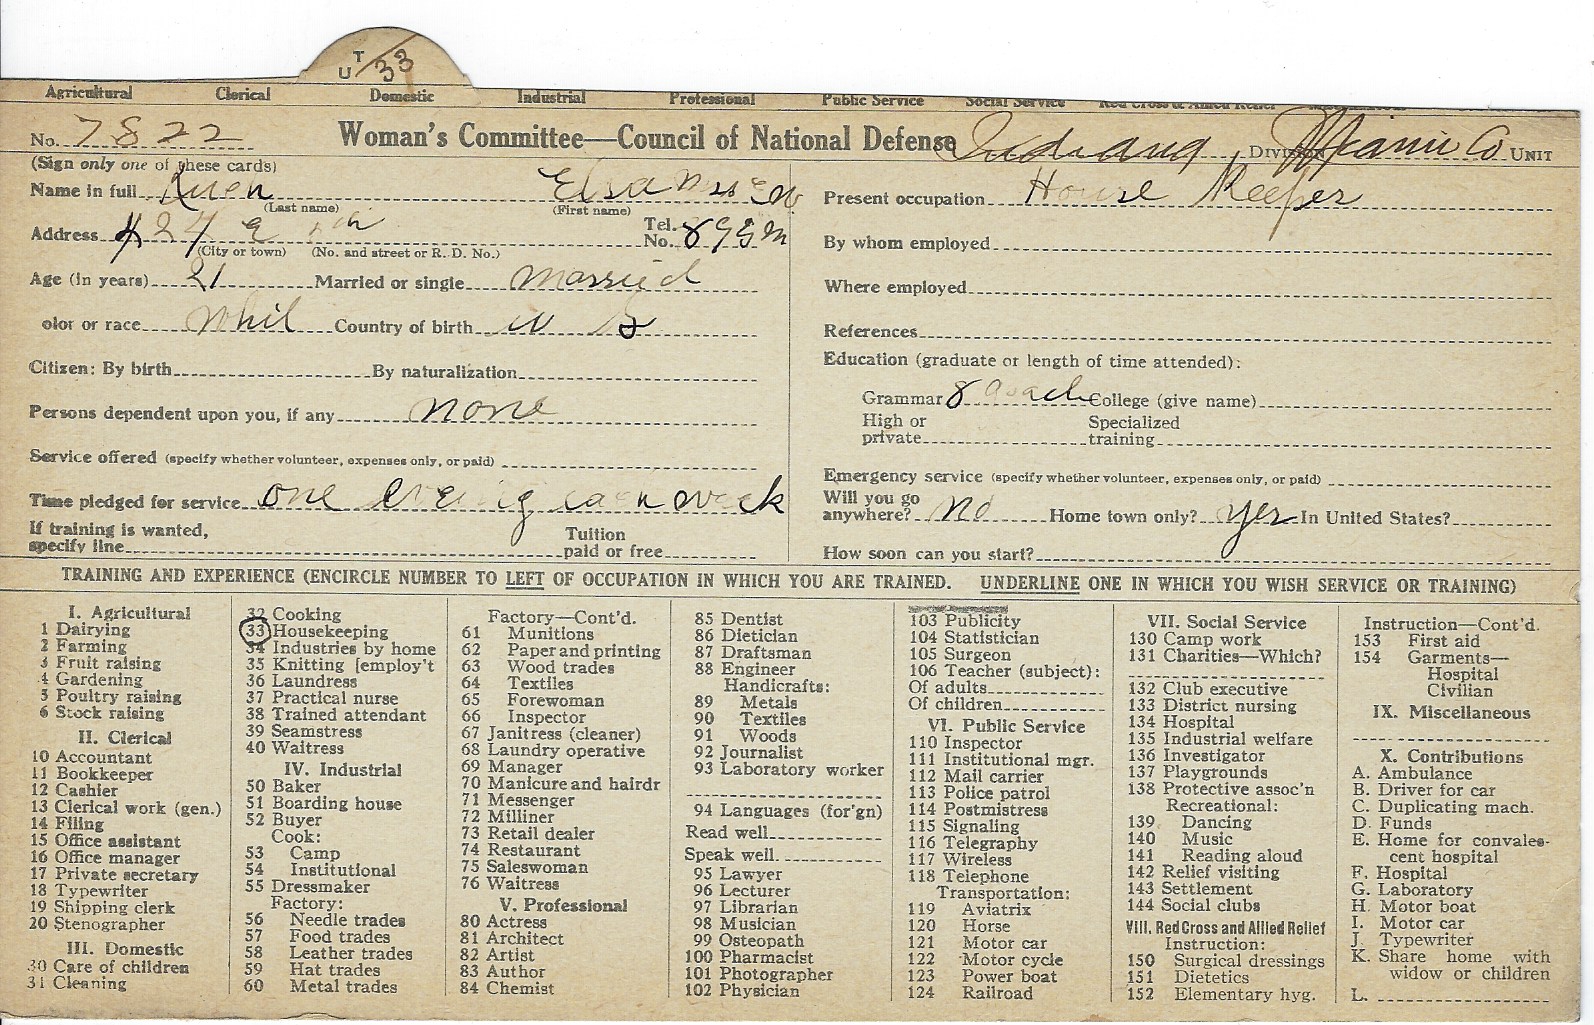 T
U 33
Agricultural Clerical Domestic Industrial Professional Public Service Social Service Red Cross & Allied Relief
No. 7822 Woman's Committee—Council of National Defense Indiana Division Miami Co Unit
(Sign only one of these cards)
Name in full Elsa Mrs
(Last name) (First name)
Address 424 E
Tel. No. 899M
(City or town) (No. and street or R. D. No.)
Age (in years) 21 Married or single married
olor or race Whit Country of birth U S
Citizen: By birth By naturalization
Persons dependent upon you, if any none
Service offered (specify whether volunteer, expenses only, or paid)
Time pledged for service one week
If training is wanted, specify line Tuition paid or free
Present occupation House Keeper
By whom employed
Where employed
References
Education (graduate or length of time attended):
Grammar 8 College (give name)
High or private Specialized training
Emergency service (specify whether volunteer, expenses only, or paid)
Will you go anywhere? No Home town only? yes In United States?
How soon can you start?
TRAINING AND EXPERIENCE (ENCIRCLE NUMBER TO LEFT OF OCCUPATION IN WHICH YOU ARE TRAINED. UNDERLINE ONE IN WHICH YOU WISH SERVICE OR TRAINING)
I. Agricultural
1 Dairying
2 Farming
3 Fruit raising
4 Gardening
5 Poultry raising
6 Stock raising
II. Clerical
10 Accountant
11 Bookkeeper
12 Cashier
13 Clerical work (gen.)
14 Filing
15 Office assistant
16 Office manager
17 Private secretary
18 Typewriter
19 Shipping clerk
20 Stenographer
III. Domestic
30 Care of children
31 Cleaning
32 Cooking
33 Housekeeping
34 Industries by home
35 Knitting [employ't
36 Laundress
37 Practical nurse
38 Trained attendant
39 Seamstress
40 Waitress
IV. Industrial
50 Baker
51 Boarding house
52 Buyer
Cook:
53 Camp
54 Institutional
55 Dressmaker
Factory:
56 Needle trades
57 Food trades
58 Leather trades
59 Hat trades
60 Metal trades
Factory—Cont'd.
61 Munitions
62 Paper and printing
63 Wood trades
64 Textiles
65 Forewoman
66 Inspector
67 Janitress (cleaner)
68 Laundry operative
69 Manager
70 Manicure and hairdr
71 Messenger
72 Milliner
73 Retail dealer
74 Restaurant
75 Saleswoman
76 Waitress
V. Professional
80 Actress
81 Architect
82 Artist
83 Author
84 Chemist
85 Dentist
86 Dietician
87 Draftsman
88 Engineer
Handicrafts:
89 Metals
90 Textiles
91 Woods
92 Journalist
93 Laboratory worker
94 Languages (for'gn)
Read well
Speak well.
95 Lawyer
96 Lecturer
97 Librarian
98 Musician
99 Osteopath
100 Pharmacist
101 Photographer
102 Physician
103 Publicity
104 Statistician
105 Surgeon
106 Teacher (subject):
Of adults
Of children
VI. Public Service
110 Inspector
111 Institutional mgr.
112 Mail carrier
113 Police patrol
114 Postmistress
115 Signaling
116 Telegraphy
117 Wireless
118 Telephone
Transportation:
119 Aviatrix
120 Horse
121 Motor car
122 Motor cycle
123 Power boat
124 Railroad
VII. Social Service
130 Camp work
131 Charities—Which?
132 Club executive
133 District nursing
134 Hospital
135 Industrial welfare
136 Investigator
137 Playgrounds
138 Protective assoc'n
Recreational:
139 Dancing
140 Music
141 Reading aloud
142 Relief visiting
143 Settlement
144 Social clubs
VIII. Red Cross and Allied Relief
Instruction:
150 Surgical dressings
151 Dietetics
152 Elementary hyg.
Instruction—Cont'd.
153 First aid
154 Garments—
Hospital
Civilian
IX. Miscellaneous
X. Contributions
A. Ambulance
B. Driver for car
C. Duplicating mach.
D. Funds
E. Home for convales-
cent hospital
F. Hospital
G. Laboratory
H. Motor boat
I. Motor car
J. Typewriter
K. Share home with
widow or children
L.